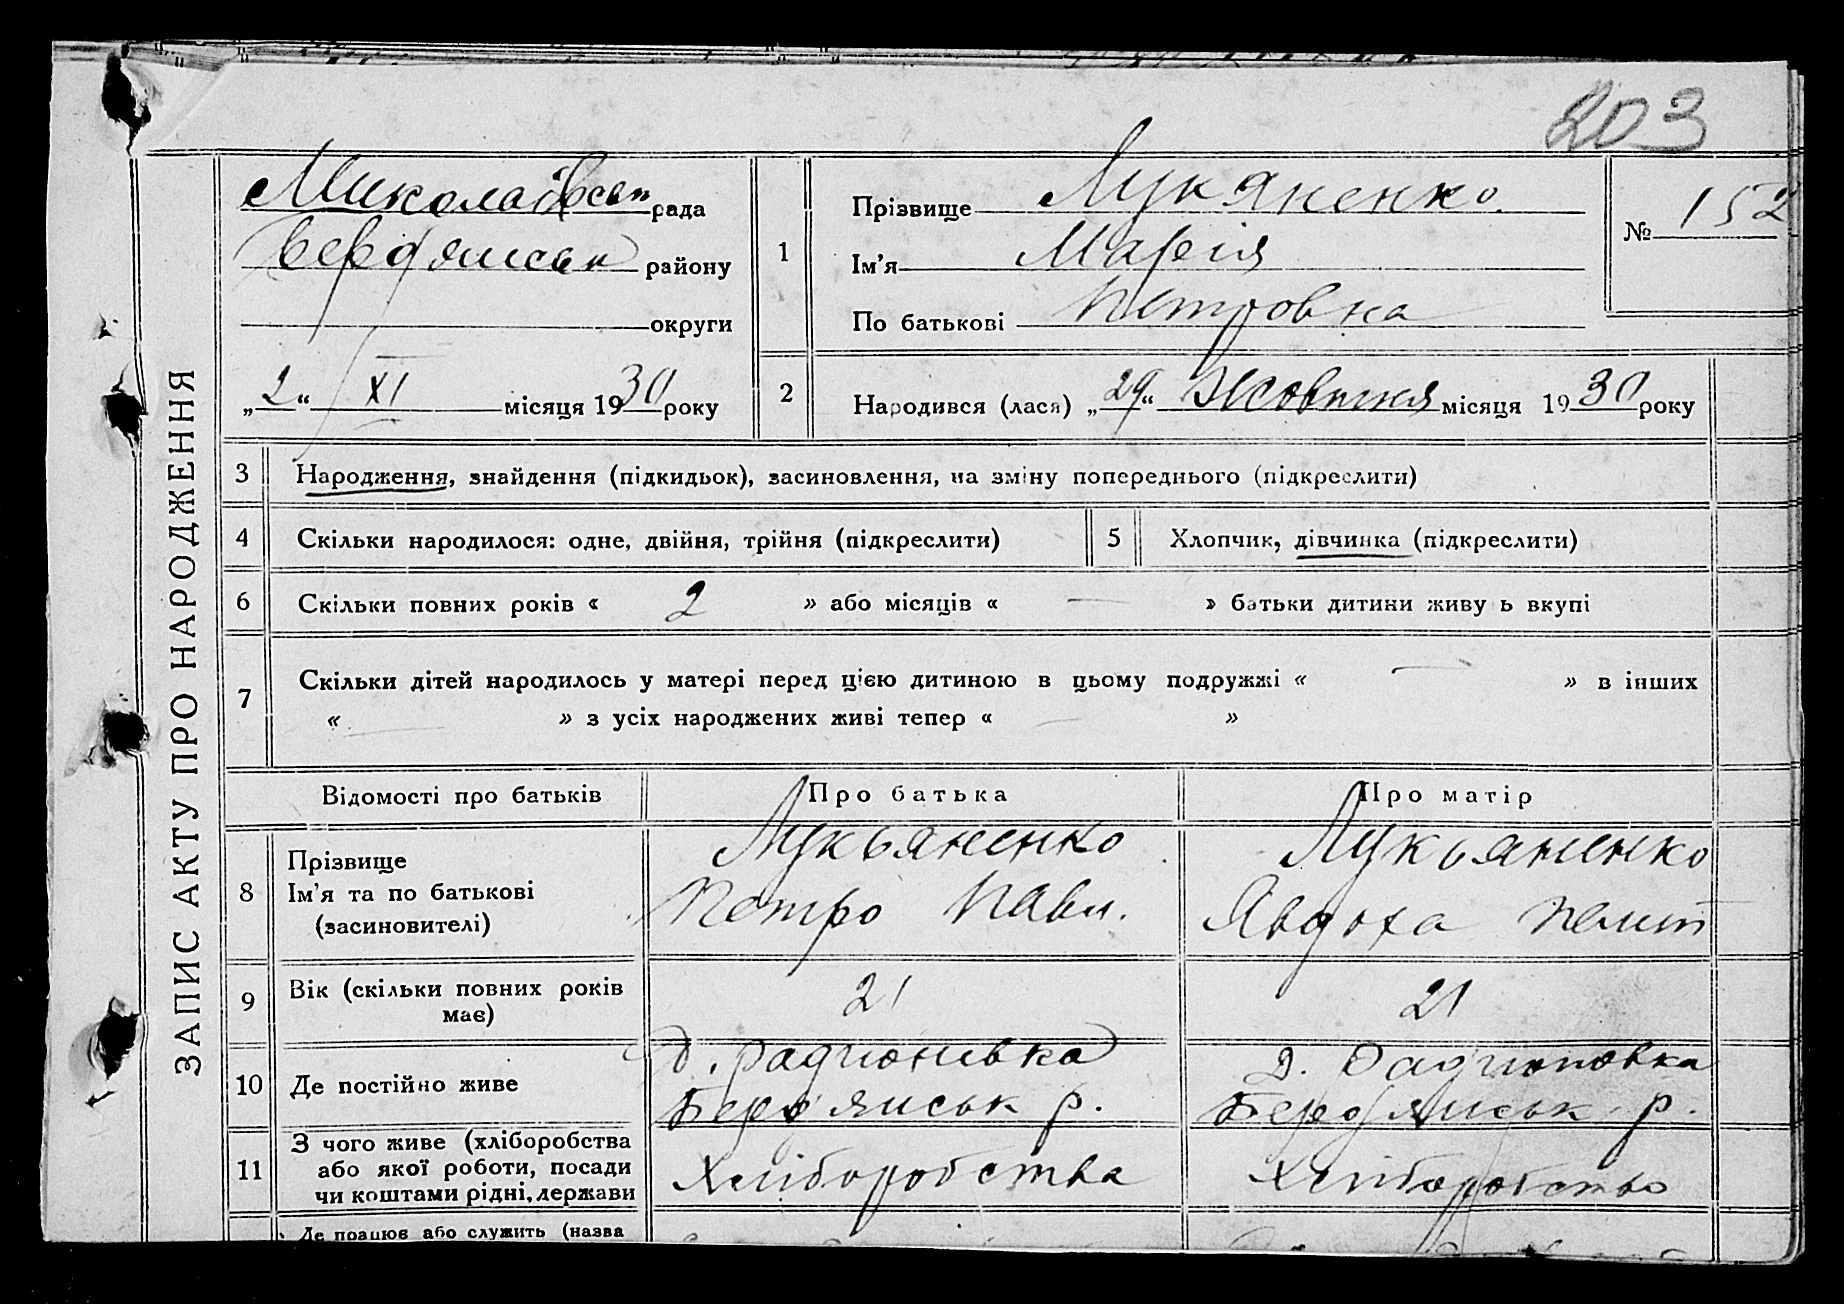 203
ЗАПИС АКТУ ПРО НАРОДЖЕННЯ
Миколаївськ рада
Бердянськ району
округи
„2“ XI місяця 1930 року
1
Прізвище Лукяненко
Ім’я Марія
По батькові Петровна
№ 152
2
Народився (лася) „29“ Жовтня місяця 1930 року
3 Народження, знайдення (підкидьок), засиновлення, на зміну попереднього (підкреслити)
4 Скільки народилося: одне, двійня, трійня (підкреслити) 5 Хлопчик, дівчинка (підкреслити)
6 Скільки повних років « 2 » або місяців « — » батьки дитини живуть вкупі
7 Скільки дітей народилось у матері перед цією дитиною в цьому подружжі « — » в інших
« — » з усіх народжених живі тепер « — »
Відомості про батьків Про батька Про матір
8 Прізвище
Ім’я та по батькові
(засиновителі)
Лукьяненко
Петро Павл.
Лукьяненко
Явдоха
9 Вік (скільки повних років
має)
21 21
10 Де постійно живе
д. Радионивка
Бердянськ р.
д. Радионовка
Бердянськ р.
11 З чого живе (хліборобства
або якої роботи, посади
чи коштами рідні, держави
Хліборобства Хліборобство
Де працює або служить (назва